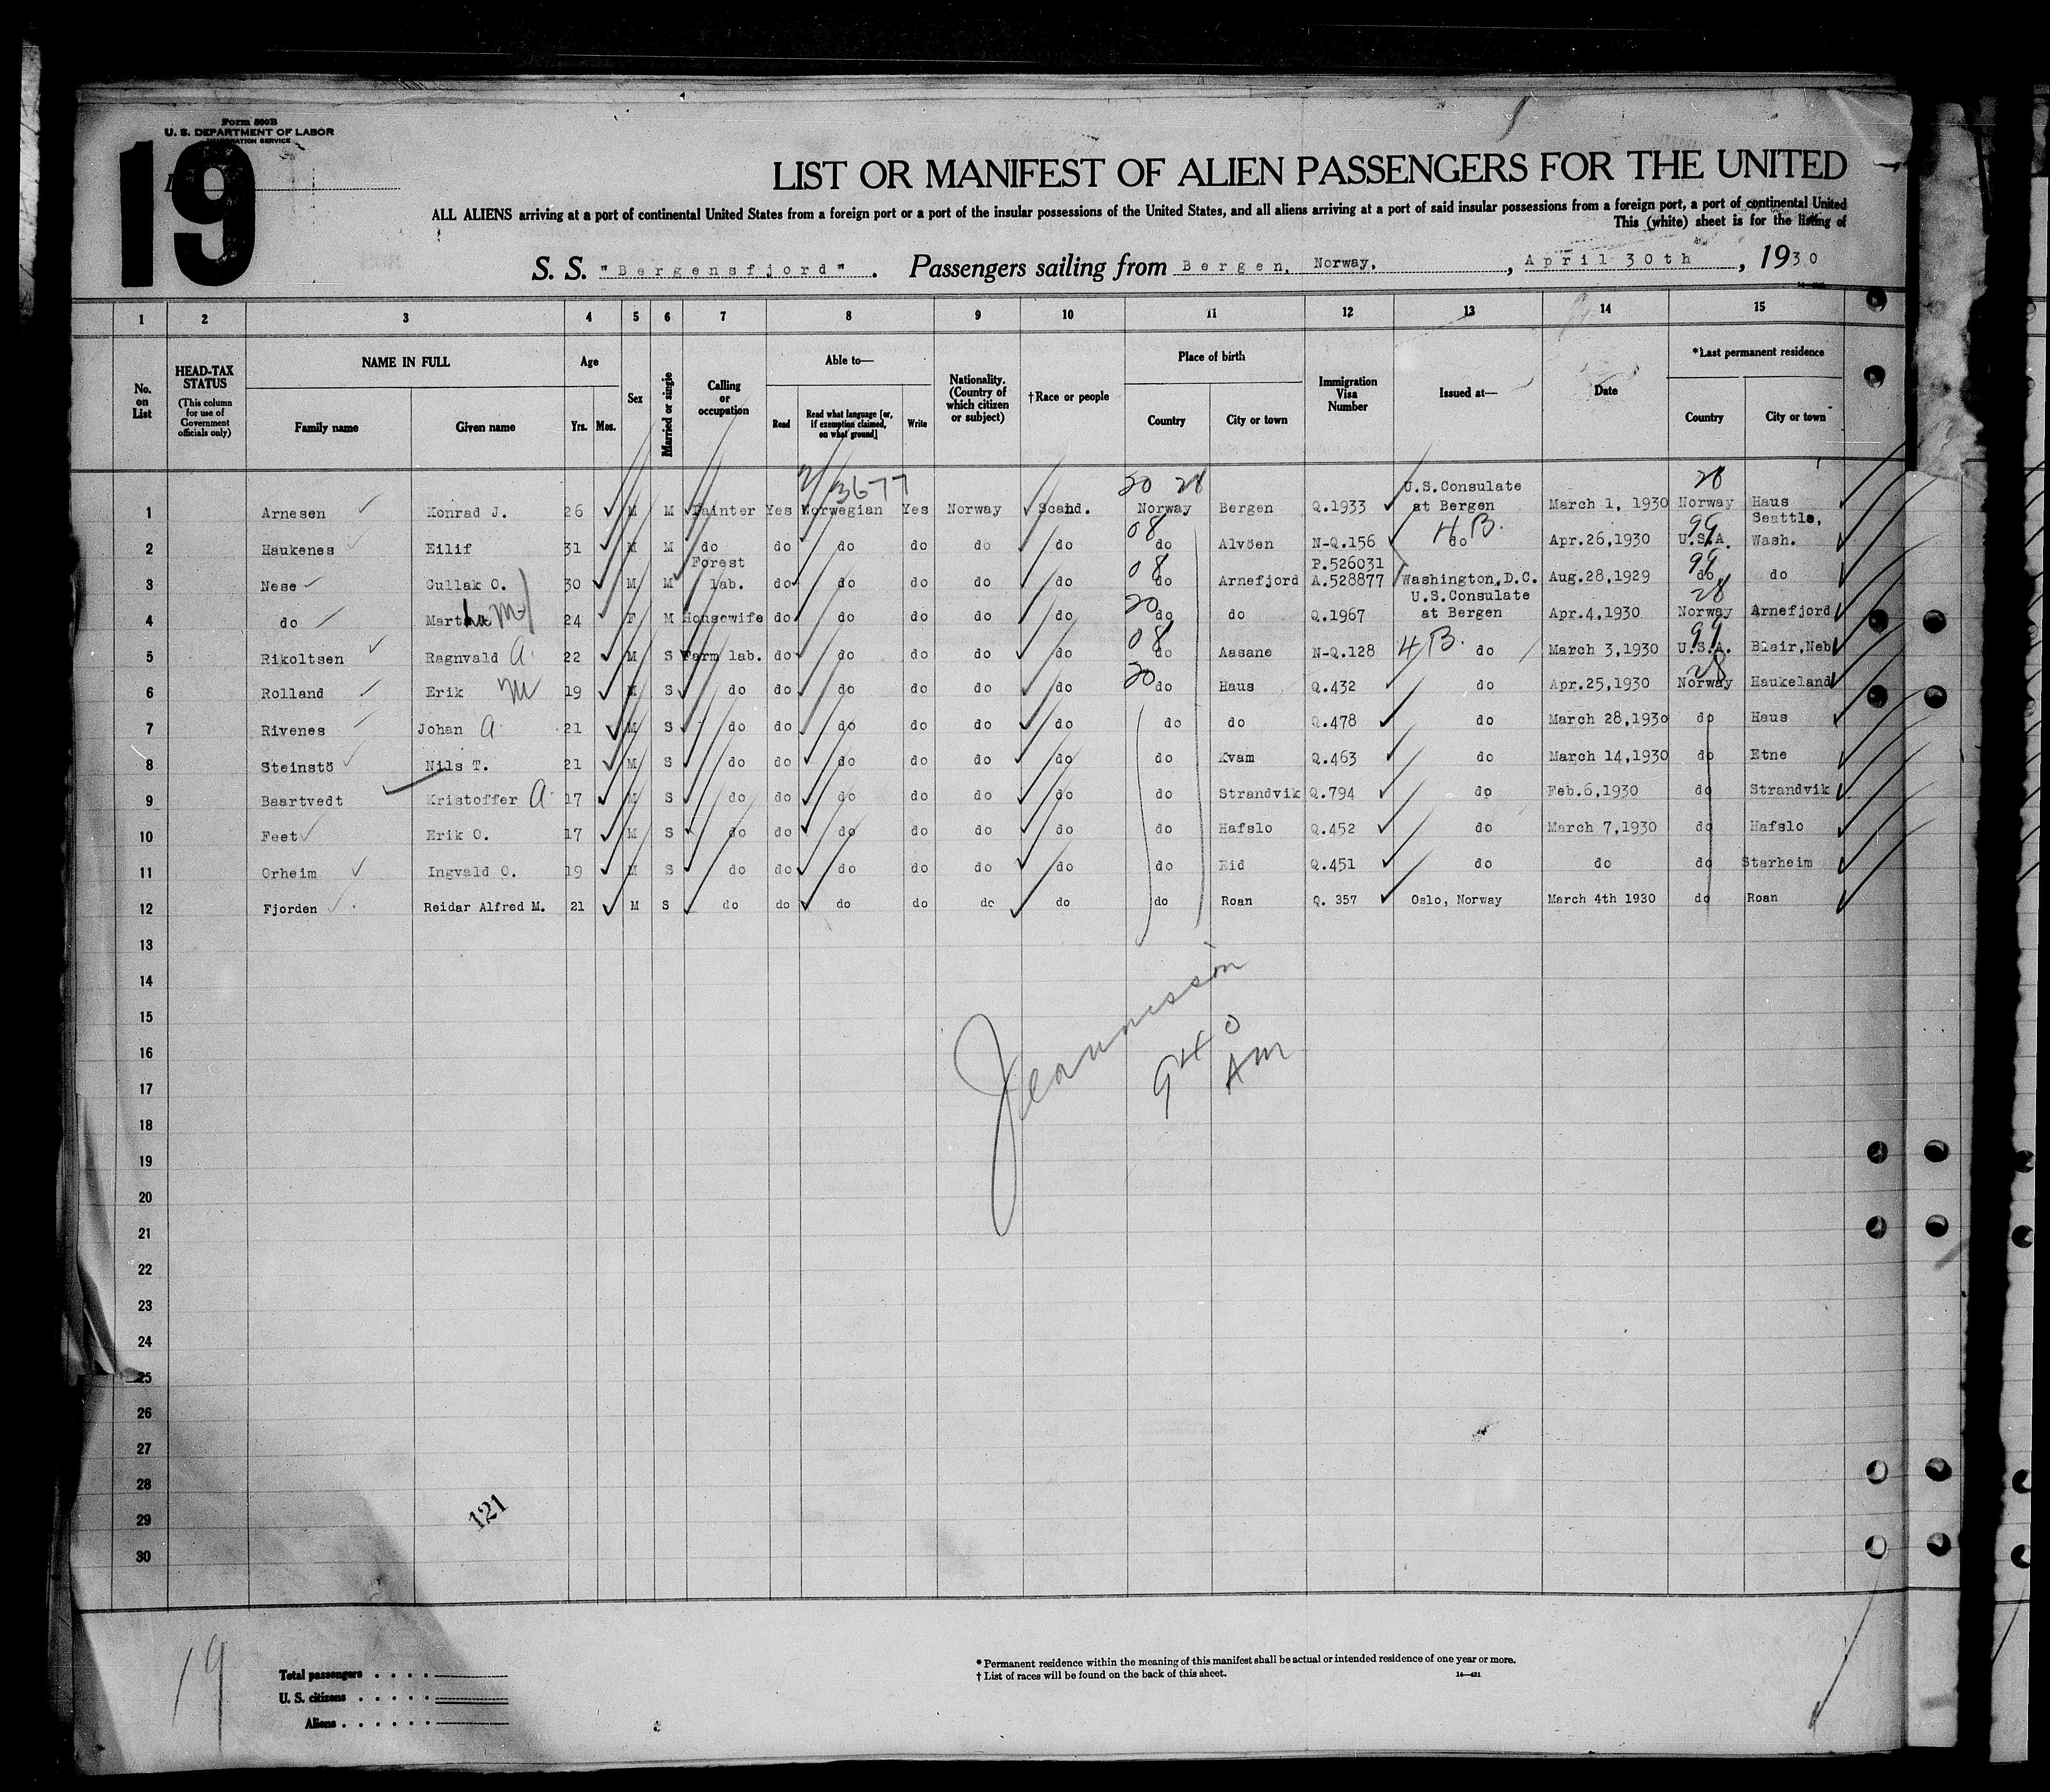 Form 500B
U. S. DEPARTMENT OF LABOR
IMMIGRATION SERVICE
19
LIST OR MANIFEST OF ALIEN PASSENGERS FOR THE UNITED
ALL ALIENS arriving at a port of continental United States from a foreign port or a port of the insular possessions of the United States, and all aliens arriving at a port of said insular possessions from a foreign port, a port of continental United
This (white) sheet is for the listing of
S. S. "Bergensfjord". Passengers sailing from Bergen, Norway, , April 30th , 1930
1 2 3 4 5 6 7 8 9 10 11 12 13 14 15
No. on List
HEAD-TAX STATUS (This column for use of Government officials only)
NAME IN FULL
Family name Given name
Age
Yrs. Mos.
Sex
Married or single
Calling or occupation
Able to—
Read Read what language [or, if exemption claimed, on what ground] Write
Nationality. (Country of which citizen or subject)
†Race or people
Place of birth
Country City or town
Immigration Visa Number
Issued at—
Date
*Last permanent residence
Country City or town
3677 20 28 28
1 Arnesen Konrad J. 26 M M Painter Yes Norwegian Yes Norway Scand. Norway Bergen Q.1933 U.S.Consulate at Bergen March 1, 1930 Norway Haus
2 Haukenes Eilif 31 M M do do do do do do 08 do Alvöen N-Q.156 4B. do Apr.26,1930 99 U.S.A. Seattle, Wash.
3 Nese Gullak O. 30 M M Forest lab. do do do do do 08 do Arnefjord P.526031 A.528877 Washington,D.C. Aug.28,1929 99 do do
4 do Martha 24 F M Housewife do do do do do 20 do do Q.1967 U.S.Consulate at Bergen Apr.4,1930 28 Norway Arnefjord
5 Rikoltsen Ragnvald A. 22 M S Farm lab. do do do do do 08 do Aasane N-Q.128 4B. do March 3,1930 99 U.S.A. Blair,Neb
6 Rolland Erik M 19 M S do do do do do do 20 do Haus Q.432 do Apr.25,1930 28 Norway Haukeland
7 Rivenes Johan A. 21 M S do do do do do do do do Q.478 do March 28,1930 do Haus
8 Steinstö Nils T. 21 M S do do do do do do do Kvam Q.463 do March 14,1930 do Etne
9 Baartvedt Kristoffer A. 17 M S do do do do do do do Strandvik Q.794 do Feb.6,1930 do Strandvik
10 Feet Erik O. 17 M S do do do do do do do Hafslo Q.452 do March 7,1930 do Hafslo
11 Orheim Ingvald O. 19 M S do do do do do do do Eid Q.451 do do do Starheim
12 Fjorden Reidar Alfred M. 21 M S do do do do do do do Roan Q. 357 Oslo, Norway March 4th 1930 do Roan
13
14
15
16
17
18
19
20
21
22
23
24
25
26
27
28
29
30
940 AM
121
19
Total passengers
U. S. citizens
Aliens
* Permanent residence within the meaning of this manifest shall be actual or intended residence of one year or more.
† List of races will be found on the back of this sheet.
14—421